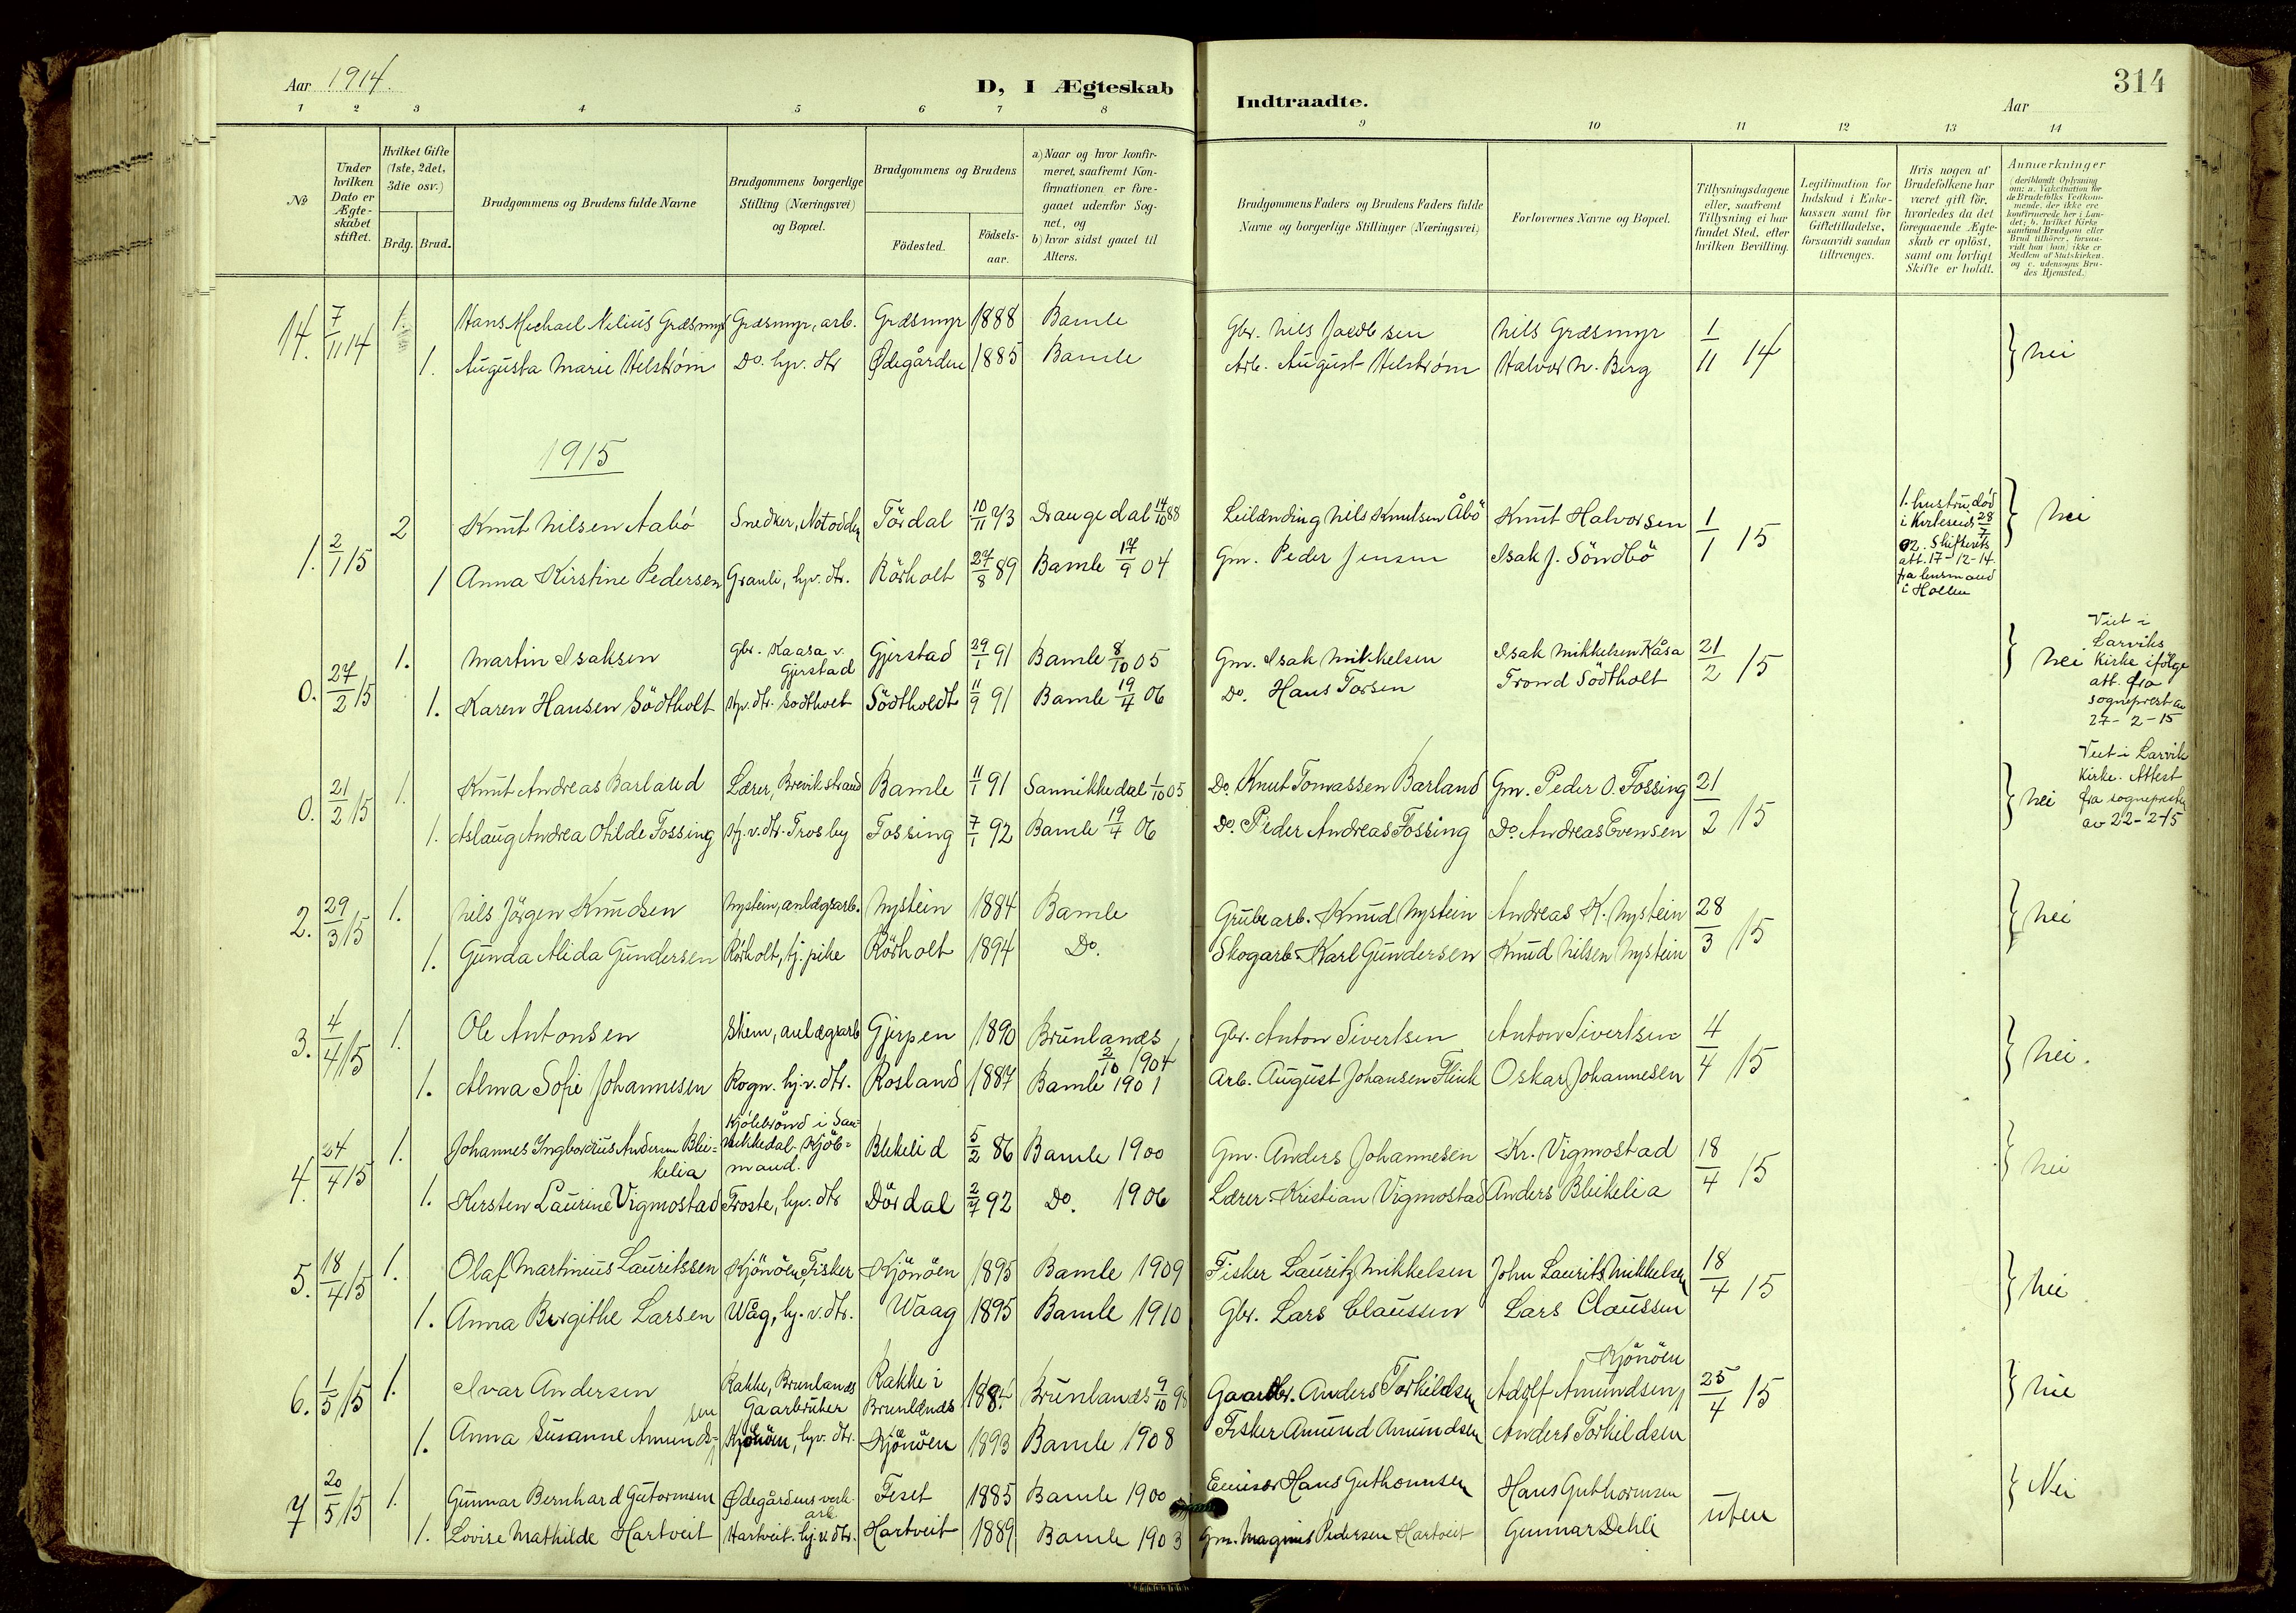 Aar 1914.
D, I Ægteskab
Indtraadte.
Aar
314
1 2 3 4 5 6 7 8 9 10 11 12 13 14
No
Under hvilken Dato er Ægteskabet stiftet.
Hvilket Gifte (1ste, 2det, 3die osv.)
Brdg. Brud.
Brudgommens og Brudens fulde Navne
Brudgommens borgerlige Stilling (Næringsvei) og Bopæl.
Brudgommens og Brudens
Födested.
Födselsaar.
a) Naar og hvor konfirmeret, saafremt Konfirmationen er foregaaet udenfor Sognet, og
b) hvor sidst gaaet til Alters.
Brudgommens Faders og Brudens Faders fulde Navne og borgerlige Stillinger (Næringsvei)
Forlovernes Navne og Bopæl.
Tillysningsdagene eller, saafremt Tillysning ei har fundet Sted, efter hvilken Bevilling.
Legitimation for Indskud i Enkekassen samt for Giftetilladelse, forsaavidt saadan tiltrænges.
Hvis nogen af Brudefolkene har været gift för, hvorledes da det foregaaende Ægteskab er oplöst, samt om lovligt Skifte er holdt.
Anmerkninger (deriblandt Oplysning om: a. Vakcination for de Brudefolks Vedkommende, der ikke ere konfirmerede her i Landet; b. hvilket Kirkesamfund Brudgom eller Brud tilhörer, forsaavidt han (hun) ikke er Medlem af Statskirken, og c. udensogns Brudes Hjemsted.
14. 7/11 14 1. Hans Michael Nilius Græsmyr Græsmyr, arb. Græsmyr 1888 Bamle Gbr. Nils Jacobsen Nils Græsmyr 1/11 14 } nei
1. Augusta Marie Helström Do. hv. dtr Ødegården 1885 Bamle Arb. August Helström Halvor N. Berg
1915
1. 2/1 15 2 Knut Nilsen Aabö Snedker, Notodden Tördal 10/11 73 Drangedal 14/10 88 Leilænding Nils Knutsen Åbö Knut Halvorsen 1/1 15 1. hustru död i Kirkeseid 28/7 02. Skifterets att. 17-12-14. fra lensmand i Hollen } nei
1 Anna Kirstine Pedersen Granli, hv. dtr. Rörholt 27/8 89 Bamle 17/9 04 Gm. Peder Jensen Isak J. Söndbö
0. 27/2 15 1. Martin Isaksen Gbr. Kaasa v. Gjerstad Gjerstad 29/1 91 Bamle 8/10 05 Gm. Isak Mikkelsen Isak Mikkelsen Kåsa 21/2 15 } nei Viet i Larviks Kirke ifölge att. fra sogneprest av 27-2-15
1. Karen Hansen Södtholt Hv. dtr. Södtholt Södtholdt 11/9 91 Bamle 19/4 06 Do. Hans Torsen Trond Södtholt
0. 21/2 15 1. Knut Andreas Barland Lærer, Brevikstrand Bamle 11/1 91 Sannikkedal 1/10 05 Do. Knut Tomassen Barland Gm. Peder O. Fossing 21/2 15 } nei Viet i Larvik Kirke. Attest fra sognepresten av 22-2-15
1. Aslaug Andrea Otilde Fossing Hj. v. dtr. Trosby Fossing 7/1 92 Bamle 19/4 06 Do. Peder Andreas Fossing Do. Andreas Evensen
2. 29/3 15 1. Nils Jörgen Knudsen Nystein, anlægsarb. Nystein 1884 Bamle Grubearb. Knud Nystein Andreas K. Nystein 28/3 15 } nei
1. Gunda Alida Gundersen Rörholt, tj. pike Rörholt 1894 Do. Skogarb. Karl Gundersen Knud Nilsen Nystein
3. 4/4 15 1. Ole Antonsen Skien, anlægsarb Gjerpen 1890 Brunlanæs 2/10 1904 Gbr. Anton Sivertsen Anton Sivertsen 4/4 15 } nei.
1. Alma Sofie Johannesen Rogn. hj. v. dtr. Rosland 1887 Bamle 1901 Arb. August Johansen Flink Oskar Johannesen
4. 24/4 15 1. Johannes Ingbordius Andersen Bleikelia Kjölebrönd i Sannikkedal. Kjöbmand. Blekelid 5/2 86 Bamle 1900 Gm. Anders Johannesen Kr. Vigmostad 18/4 15 } nei
1. Kirsten Laurine Vigmostad Froste, hv. dtr Dördal 2/7 92 Do. 1906 Lærer Kristian Vigmostad Anders Bleikelia
5. 18/4 15 1. Olaf Martinius Lauritssen Kjönöen, Fisker Kjönöen 1895 Bamle 1909 Fisker Lauritz Mikkelsen John Laurits Mikkelsen 18/4 15 } nei
1. Anna Birgithe Larsen Wåg, hj. v. dtr. Waag 1895 Bamle 1910 Gbr. Lars Claussen Lars Claussen
6. 1/5 15 1. Ivar Andersen Rakke, Brunlanæs Gaarbruker Rakke i Brunlanæs 1884 Brunlanæs 9/10 98 Gaardbr. Anders Torkildsen Adolf Amundsen, Kjönöen 25/4 15 } nei
1. Anna Susanne Amundsen Kjönöen, hv. dtr. Kjönöen 1893 Bamle 1908 Fisker Amund Amundsen Anders Torkildsen
7 20/5 15 1. Gunnar Bernhard Gutormsen Ødegårdens verk arb Feset 1885 Bamle 1900 Hans Guthormsen Hans Guthormsen uten } Nei
1. Lovise Mathilde Hartveit Hartveit. hj. v. dtr. Hartveit 1889 Bamle 1903 Gm. Magnus Pedersen Hartveit Gunnar Dehli